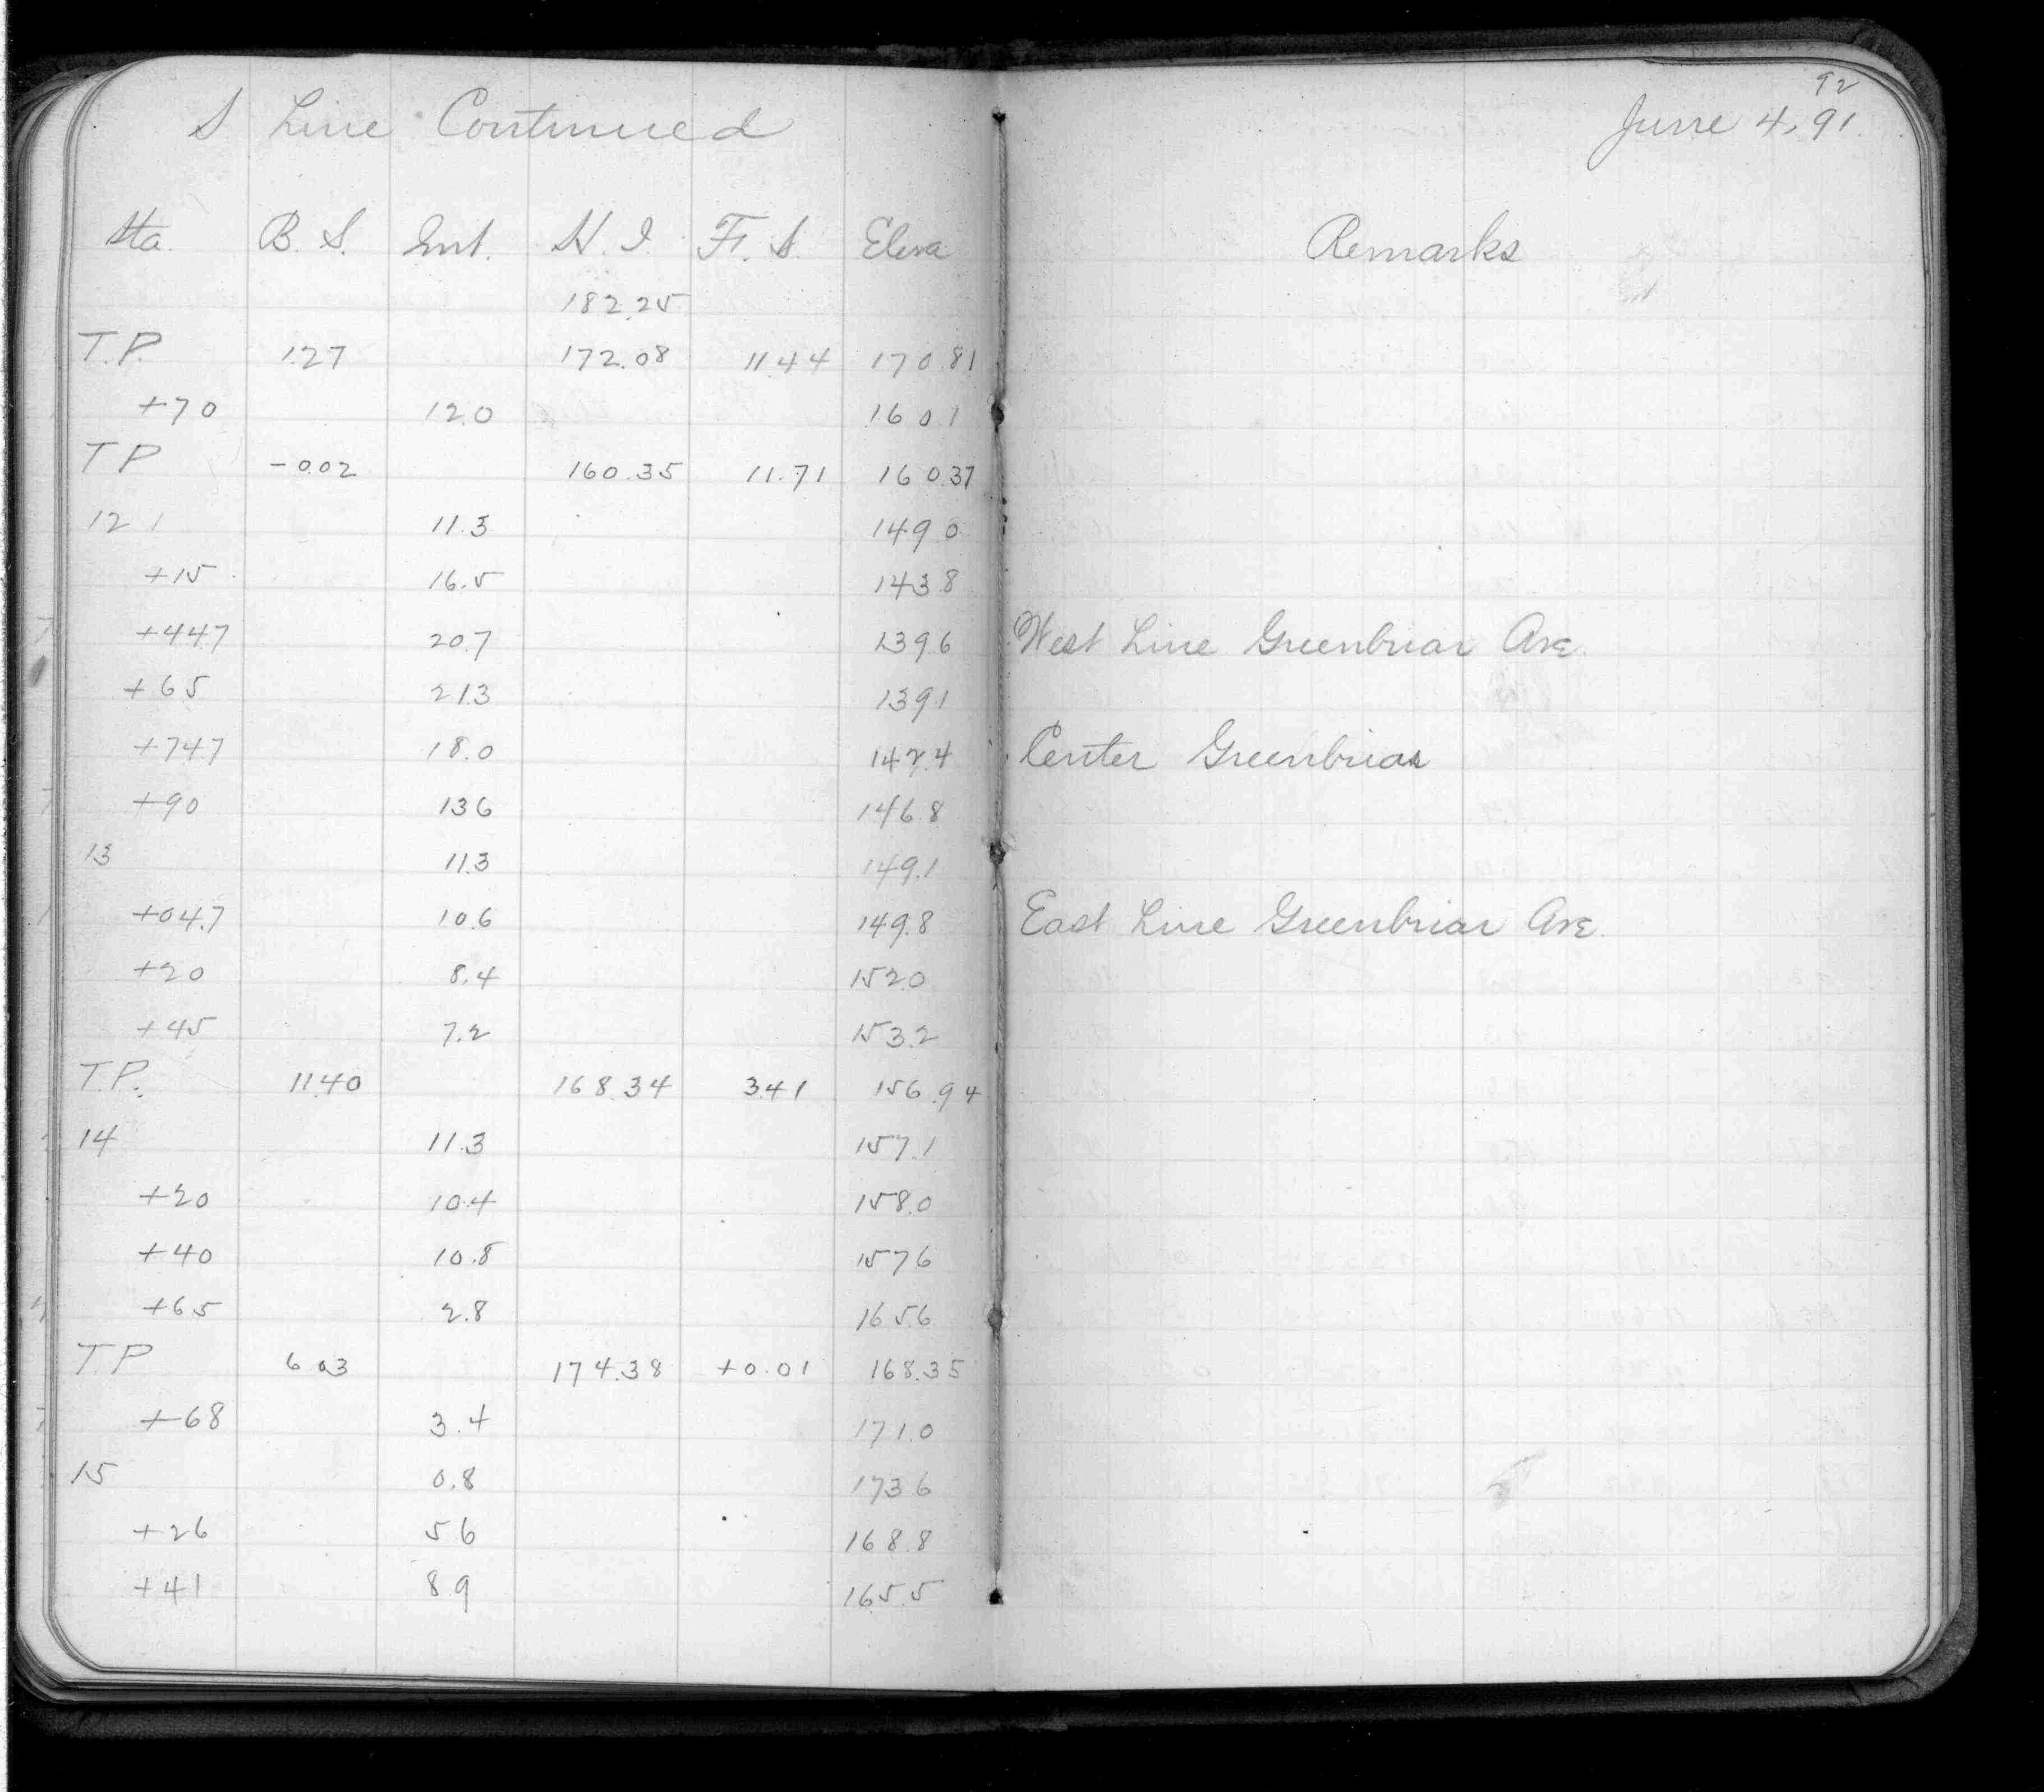 S Line Continued
92
June 4, 91.
Sta. B. S. Int. H. I. F. S. Eleva
Remarks
182.25
T.P. 1.27 172.08 11.44 170.81
+70 12.0 160.1
T P -0.02 160.35 11.71 160.37
12 11.3 149.0
+15 16.5 143.8
+44.7 20.7 139.6 West Line Greenbriar Ave.
+65 21.3 139.1
+74.7 18.0 142.4 Center Greenbriar
+90 13.6 146.8
13 11.3 149.1
+04.7 10.6 149.8 East Line Greenbriar Ave.
+20 8.4 152.0
+45 7.2 153.2
T.P. 11.40 168.34 3.41 156.94
14 11.3 157.1
+20 10.4 158.0
+40 10.8 157.6
+65 2.8 165.6
T P 6.03 174.38 +0.01 168.35
+68 3.4 171.0
15 0.8 173.6
+26 5.6 168.8
+41 8.9 165.5